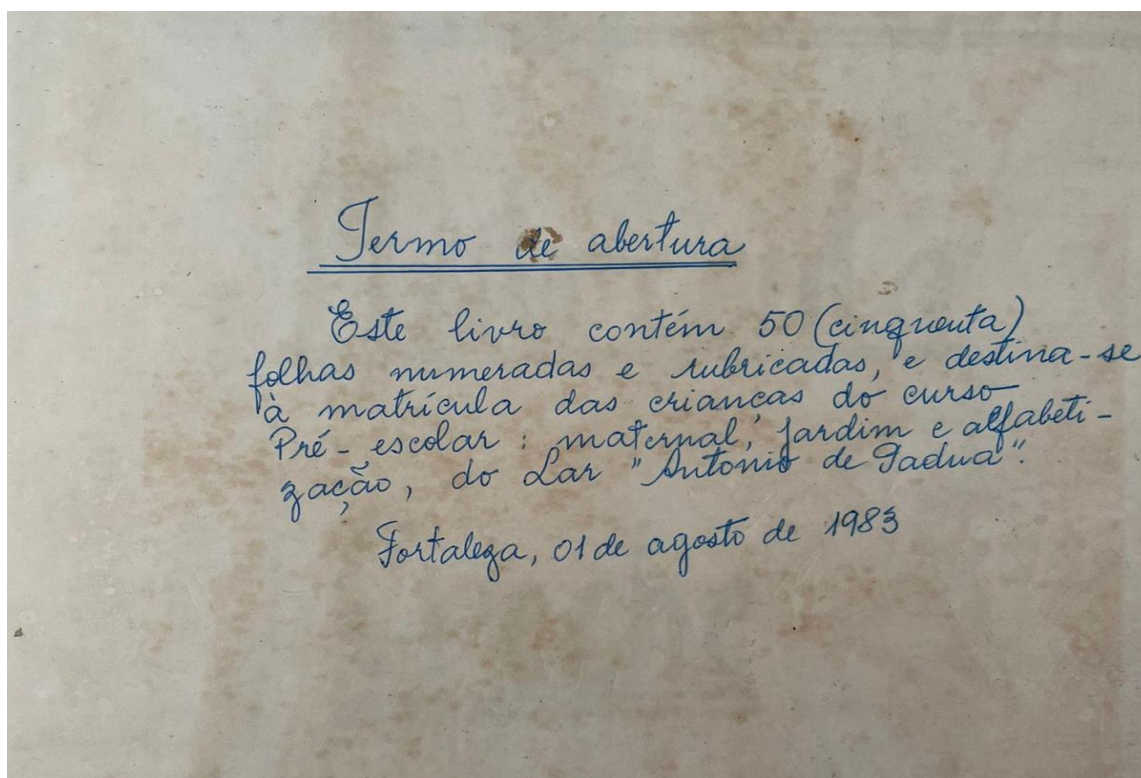 Termo de abertura
Este livro contém 50 (cinquenta)
folhas numeradas e rubricadas, e destina-se
à matrícula das crianças do curso
Pré-escolar: maternal, jardim e alfabeti-
zação, do Lar "Antonio de Padua".
Fortaleza, 01 de agosto de 1983